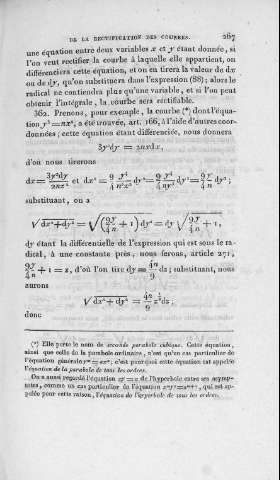 DE LA RECTIFICATION DES COURBES. 267
une équation entre deux variables x et y étant donnée, si
l'on veut rectifier la courbe à laquelle elle appartient, on
différenciera cette équation, et on en tirera la valeur de dx
ou de dy, qu'on substituera dans l'expression (88); alors le
radical ne contiendra plus qu'une variable, et si l'on peut
obtenir l'intégrale, la courbe sera rectifiable.
362. Prenons, pour exemple, la courbe (*) dont l'équa-
tion y³ = nx², a été trouvée, art. 166, à l'aide d'autres coor-
données; cette équation étant différenciée, nous donnera
3y²dy = 2nxdx,
d'où nous tirerons
dx = 3y²dy/2nx et dx² = 9/4 y⁴/n²x² dy² = 9/4 y⁴/ny³ dy² = 9/4 y/n dy²;
substituant, on a
√dx²+dy² = √(9y/4n + 1) dy² = dy √9y/4n + 1,
dy étant la différentielle de l'expression qui est sous le ra-
dical, à une constante près, nous ferons, article 271,
9y/4n + 1 = z, d'où l'on tire dy = 4n/9 dz; substituant, nous
aurons
√dx² + dy² = 4n/9 z^½ dz,
donc
(*) Elle porte le nom de seconde parabole cubique. Cette équation,
ainsi que celle de la parabole ordinaire, n'est qu'un cas particulier de
l'équation générale
c'est pourquoi cette équation est appelée
l'équation de la parabole de tous les ordres.
On a aussi regardé l'équation
de l'hyperbole entre ses asymp-
totes, comme un cas particulier de l'équation
qui est ap-
pelée pour cette raison, l'équation de l'hyperbole de tous les ordres.